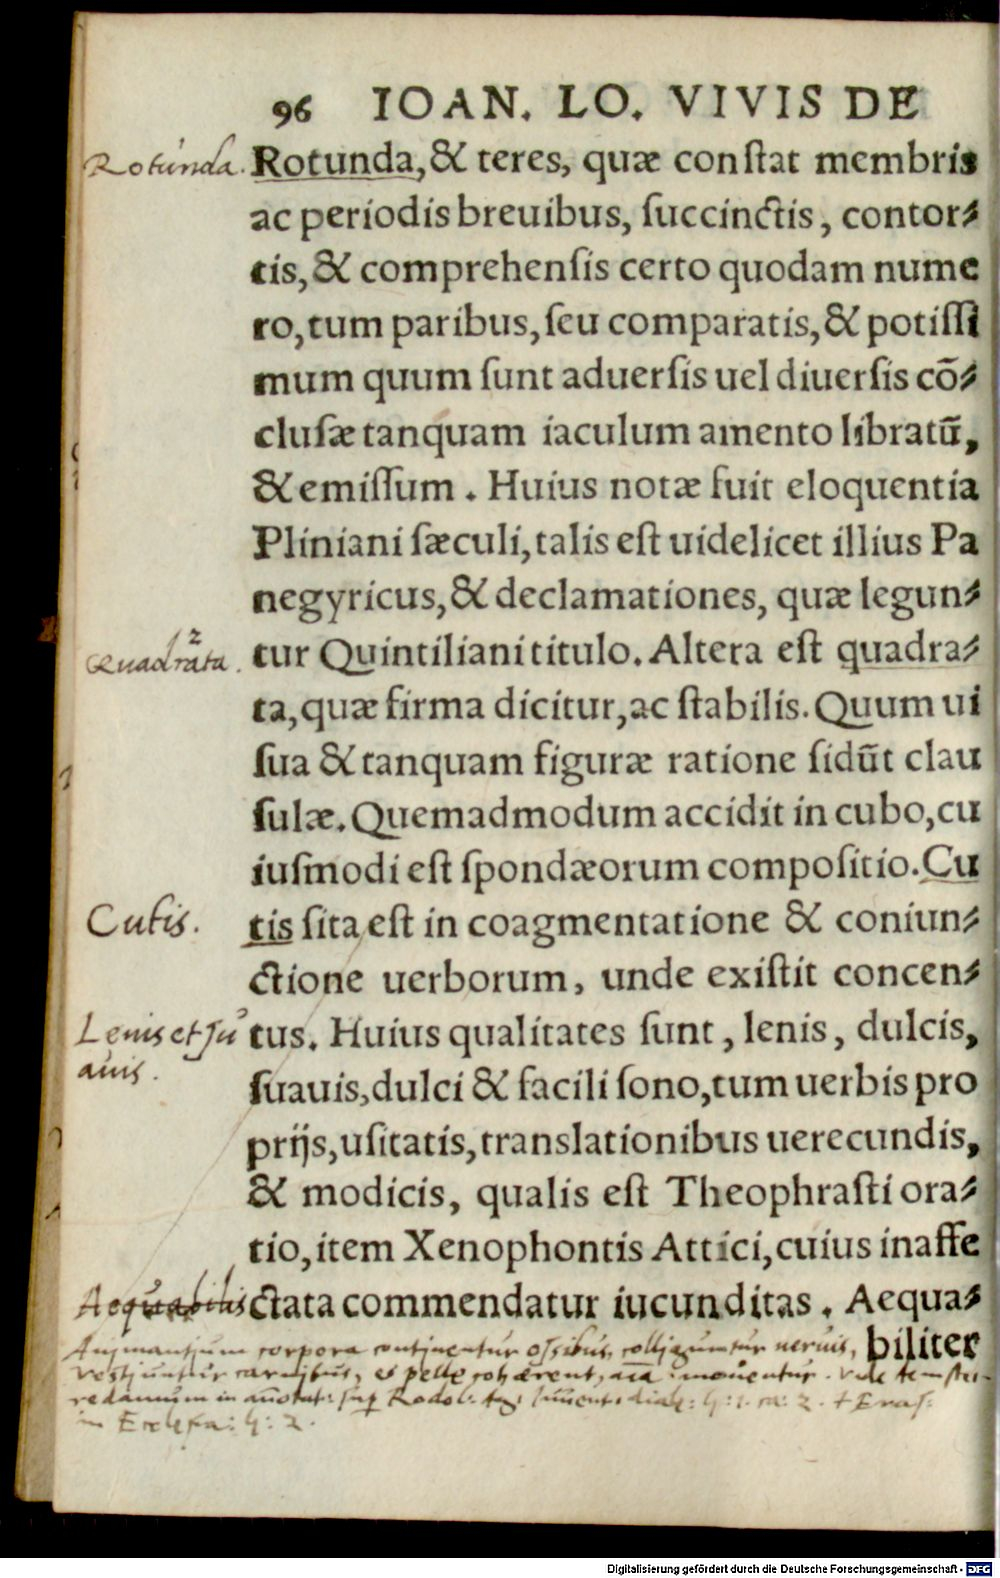 96 IOAN. LO. VIVIS DE
Rotunda. Rotunda, & teres, quæ conſtat membris
ac periodis breuibus, ſuccinctis, contor⸗
tis, & comprehenſis certo quodam nume
ro, tum paribus, ſeu comparatis, & potiſſi
mum quum ſunt aduerſis uel diuerſis cõ⸗
cluſæ tanquam iaculum amento libratũ,
& emiſſum. Huius notæ fuit eloquentia
Pliniani ſæculi, talis eſt uidelicet illius Pa
negyricus, & declamationes, quæ legun⸗
2
Quadrata. tur Quintiliani titulo. Altera eſt quadra⸗
ta, quæ firma dicitur, ac ſtabilis. Quum ui
ſua & tanquam figuræ ratione ſidũt clau
ſulæ. Quemadmodum accidit in cubo, cu
iuſmodi eſt ſpondæorum compoſitio. Cu
Cutis. tis ſita eſt in coagmentatione & coniun⸗
ctione uerborum, unde exiſtit concen⸗
Lenis et ſu tus. Huius qualitates ſunt, lenis, dulcis,
auis. ſuauis, dulci & facili ſono, tum uerbis pro
prijs, uſitatis, translationibus uerecundis,
& modicis, qualis eſt Theophraſti ora⸗
tio, item Xenophontis Attici, cuius inaffe
Aequabilis ctata commendatur iucunditas. Aequa⸗
biliter
Animantium corpora continentur oſsibus, colliguntur neruis,
veſtiuntur carnibus, et pelle cohærent, mouentur. Vide
in annotat: ſup Rodol: + Eraſ:
in Eccleſia:
Digitalisierung gefördert durch die Deutsche Forschungsgemeinschaft - DFG